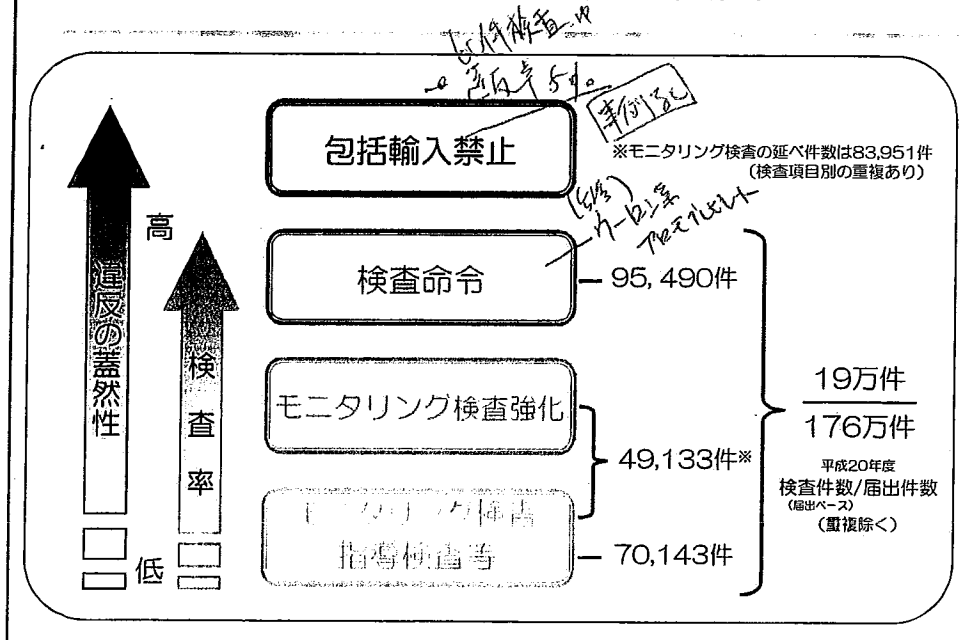 包括輸入禁止
※モニタリング検査の延べ件数は83,951件
(検査項目別の重複あり)
高
違反の蓋然性
検査率
検査命令
95,490件
モニタリング検査強化
49,133件※
モニタリング検査
指導検査等
70,143件
低
19万件
176万件
平成20年度
検査件数/届出件数
(届出ベース)
(重複除く)